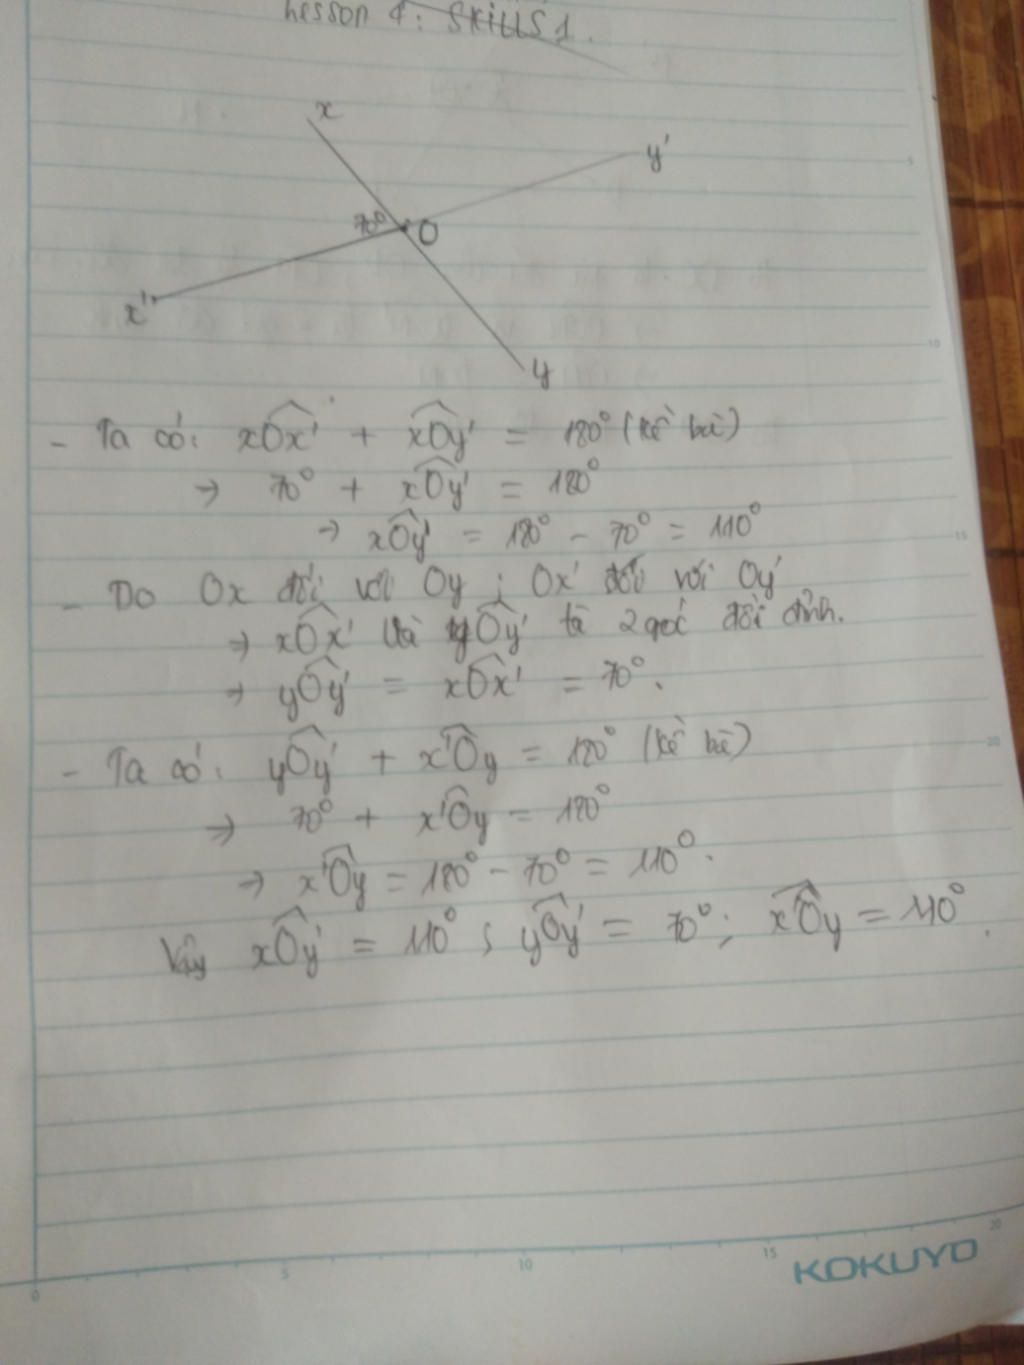 Lesson 4: Skills 1.
x
y'
70° O
x'
y
- Ta có: xOx' + xOy' = 180° (kề bù)
→ 70° + xOy' = 180°
→ xOy' = 180° - 70° = 110°
- Do Ox đối với Oy ; Ox' đối với Oy'
→ xOx' và yOy' là 2 góc đối đỉnh.
→ yOy' = xOx' = 70°.
- Ta có: yOy' + x'Oy = 180° (kề bù)
→ 70° + x'Oy = 180°
→ x'Oy = 180° - 70° = 110°.
Vậy xOy' = 110° ; yOy' = 70° ; x'Oy = 110°.
5
10
15
20
0 5 10 15 20
KOKUYO